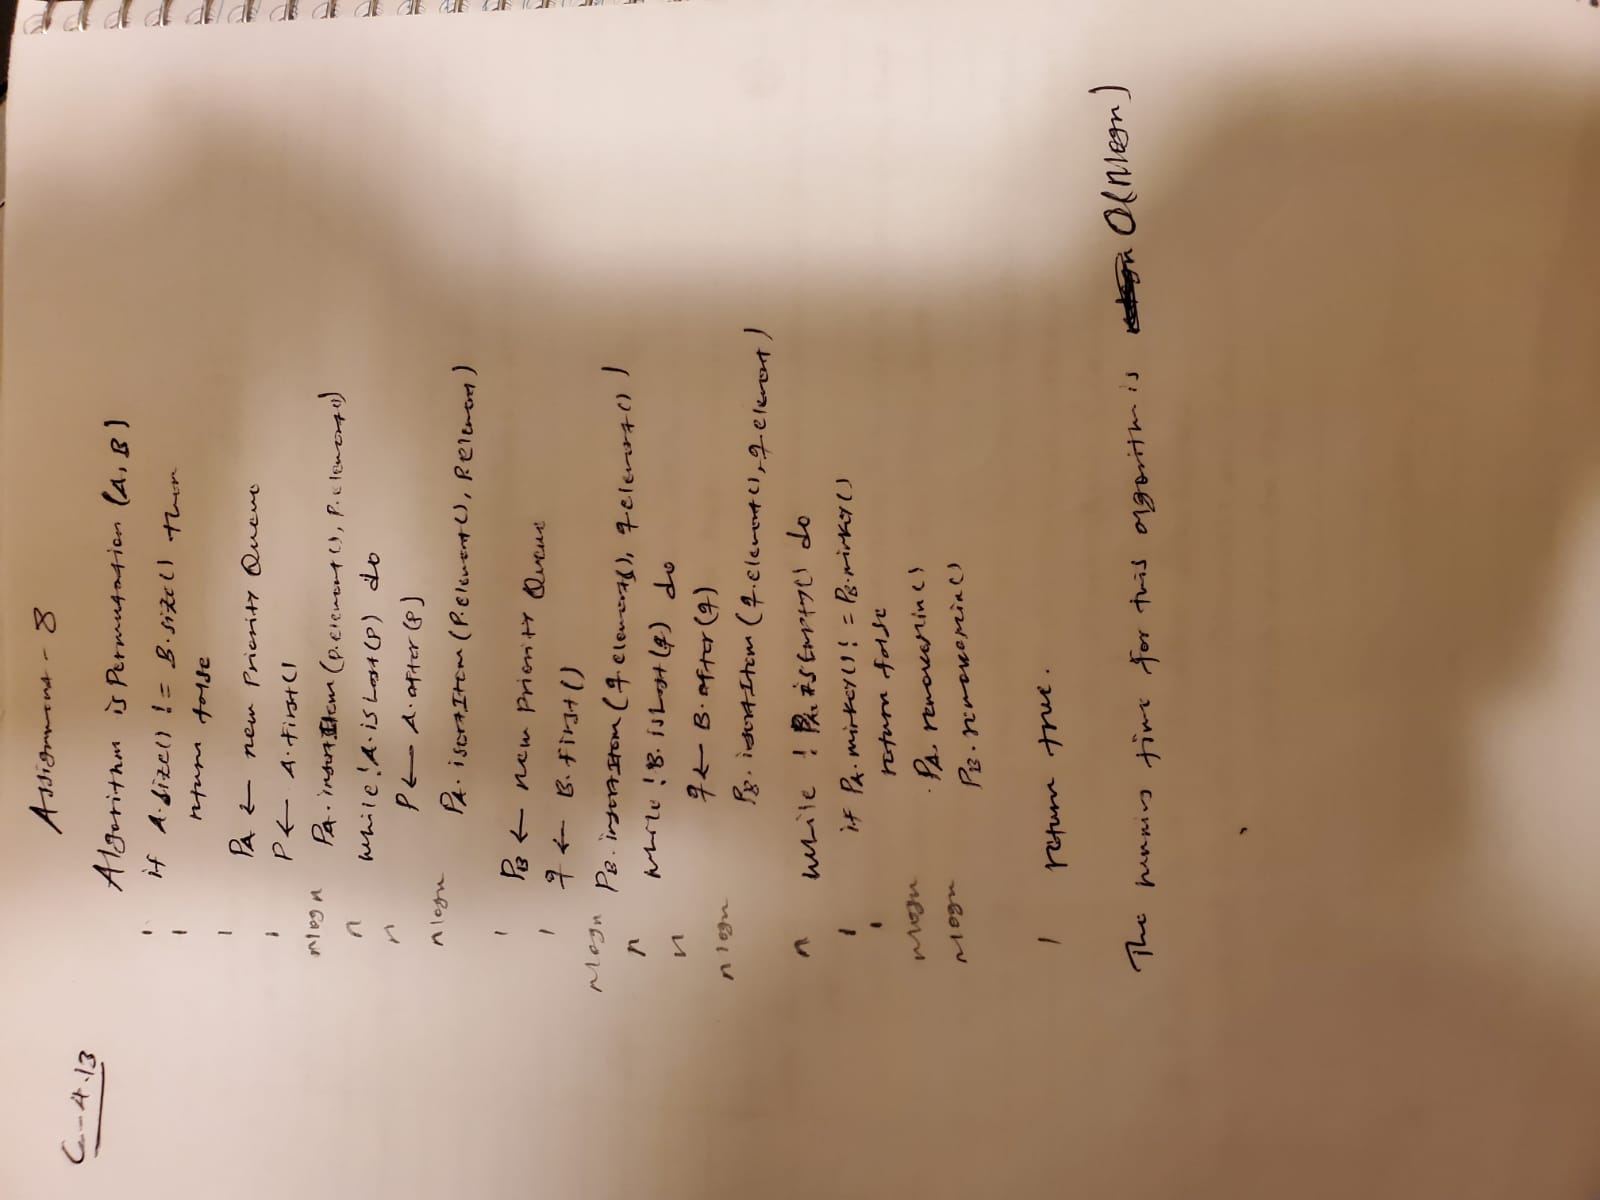 Assignment - 8
C-4.13
Algorithm isPermutation (A, B)
1 if A.size() != B.size() then
1 return false
1 PA ← new Priority Queue
1 P ← A.first()
nlogn PA.insertItem (p.element(), P.element())
n while !A.isLast(P) do
n P ← A.after(P)
nlogn PA.isertItem (P.element(), P.element)
1 PB ← new Priority Queue
1 q ← B.first()
nlogn PB.insertItem (q.element(), q.element())
n while !B.isLast(q) do
n q ← B.after(q)
nlogn PB.isertItem (q.element(), q.element)
n while !PA.isEmpty() do
1 if PA.minkey() != PB.minkey()
1 return false
nlogn PA.removeMin()
nlogn PB.removemin()
1 return true.
The running time for this algorithm is O(nlogn)